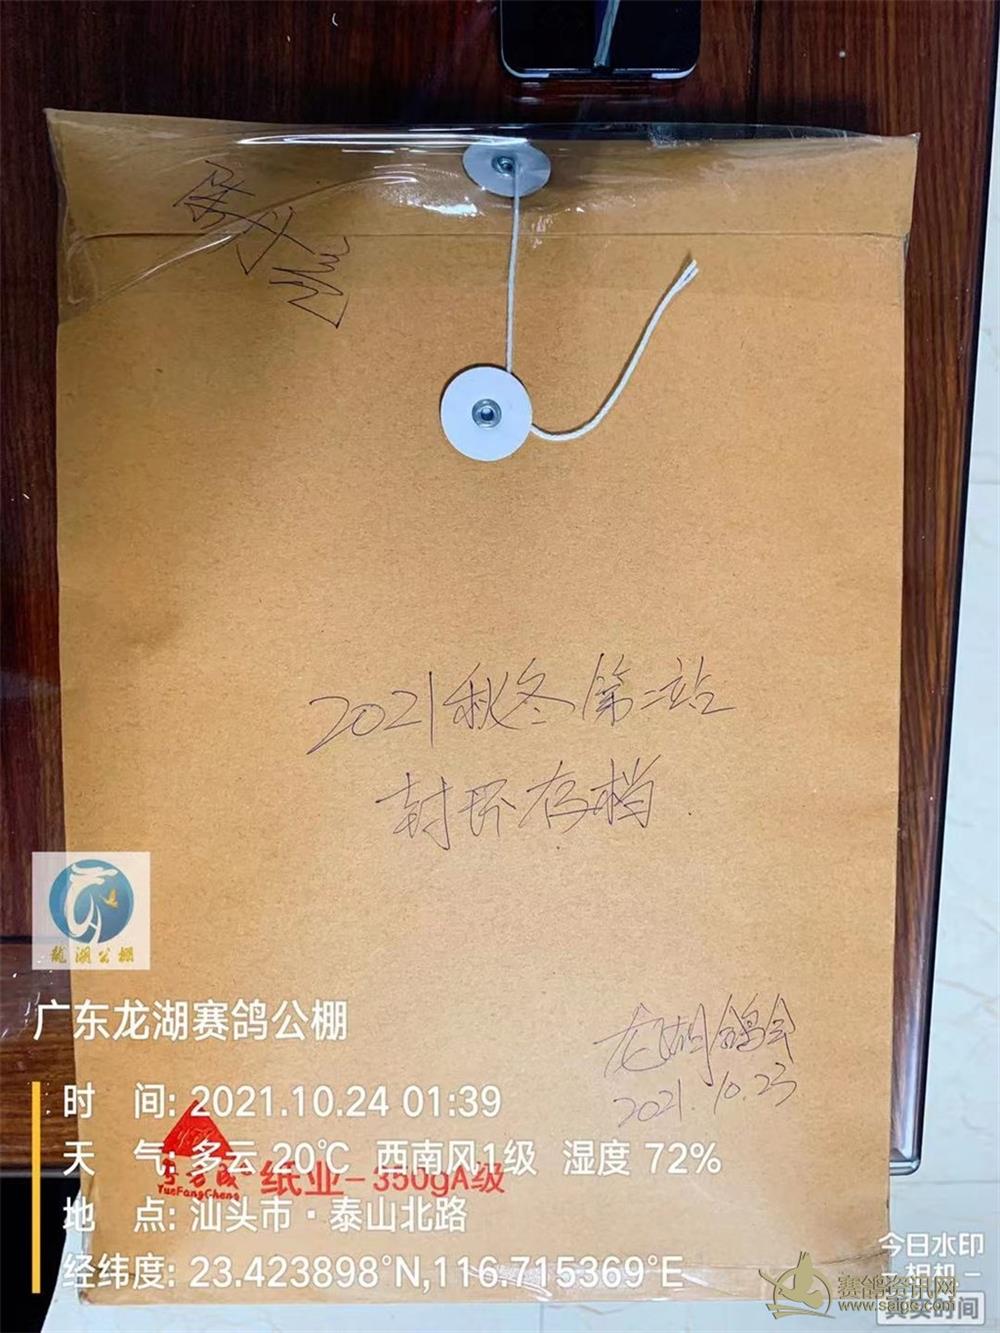 2021秋冬第二站
封环存档
龙湖鸽会
2021.10.23
龙湖公棚
广东龙湖赛鸽公棚
时 间: 2021.10.24 01:39
天 气: 多云 20℃ 西南风1级 湿度 72%
YueFangCheng 纸业-350gA级
地 点: 汕头市·泰山北路
经纬度: 23.423898°N,116.715369°E
今日水印
-相机-
真实时间
赛鸽资讯网
www.saige.com